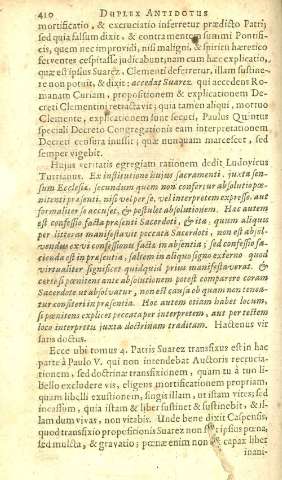 410 DUPLEX ANTIDOTUS
mortificatio, & excruciatio inferretur prædicto Patri;
sed quia falsum dixit, & contra mentem summi Pontifi-
cis, quem nec improvidi, nisi maligni, & spiritu hæretico
ferventes cespitasse judicabunt; nam cum hæc explicatio,
quæ est ipsius Suarez, Clementi deferretur, illam sustine-
re non potuit, & dixit: accedat Suarez. qui accedens Ro-
manam Curiam, propositionem & explicationem De-
creti Clementini retractavit; quia tamen aliqui, mortuo
Clemente, explicationem sunt secuti, Paulus Quintus
speciali Decreto Congregationis eam interpretationem
Decreti censura inussit; quæ nunquam marcescet, sed
semper vigebit.
Hujus veritatis egregiam rationem dedit Ludovicus
Turrianus. Ex institutione hujus sacramenti, juxta sen-
sum Ecclesiæ, secundum quem non confertur absolutio pœ-
nitenti præsenti, nisi vel per se, vel interpretem expresse, aut
formaliter se accuset, & postulet absolutionem. Hæc autem
est confessio facta præsenti Sacerdoti, & ita, quum aliquos
per litteras manifestavit peccata Sacerdoti, non est absol-
vendus ex vi confessionis factæ in absentia; sed confessio fa-
cienda est in præsentia, saltem in aliquo signo externo quod
virtualiter significet quidquid prius manifestaverat, &
certe si pœnitens ante absolutionem potest comparere coram
Sacerdote ut absolvatur, non est causa ob quam non tenea-
tur confiteri in præsentia. Hoc autem etiam habet locum,
si pœnitens explicet peccata per interpretem, aut per testem
loco interpretis juxta doctrinam traditam. Hactenus vir
satis doctus.
Ecce ubi tomus 4. Patris Suarez transfixus est in hac
parte à Paulo V. qui non intendebat Auctoris recrucia-
tionem, sed doctrinæ transfixionem, quam tu à tuo li-
bello excludere vis, eligens mortificationem propriam,
quam libelli exustionem, fugis illam, ut istam vites; sed
incassim, quia istam & liber sustinet & sustinebit, & il-
lam dum vivas, non vitabis. Unde bene dixit Caspensis,
quod transfixio propositionis Suarez non sit ipsius pœna;
sed mulcta, & gravatio; pœnæ enim non est capax liber
inani-